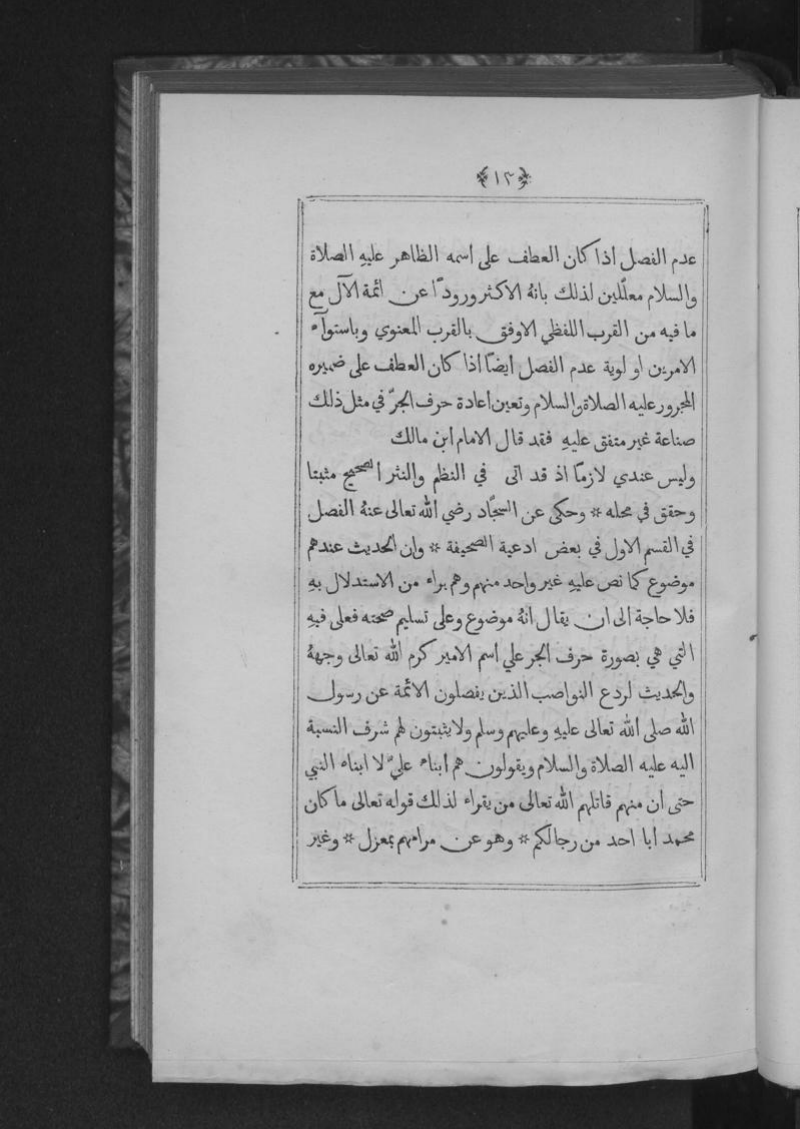 ﴿١٢﴾
عدم الفصل اذا كان العطف على اسمه الظاهر عليهِ الصلاة
والسلام معلّلين لذلك بانهُ الاكثر ورودًا عن ائمة الآل مع
ما فيه من القرب اللفظي الاوفق بالقرب المعنوي وباستوآء
الامرين او لوية عدم الفصل ايضًا اذا كان العطف على ضميره
المجرور عليه الصلاة والسلام وتعين اعادة حرف الجرّ في مثل ذلك
صناعة غير متفق عليهِ فقد قال الامام ابن مالك
وليس عندي لازمًا اذ قد اتى في النظم والنثر الصحيح مثبتا
وحقق في محله * وحكى عن السجّاد رضي الله تعالى عنهُ الفصل
في القسم الاول في بعض ادعية الصحيفة * وان الحديث عندهم
موضوع كما نص عليهِ غير واحد منهم وهم براء من الاستدلال بهِ
فلا حاجة الى ان يقال انهُ موضوع وعلى تسليم صحته فعلى فيهِ
التي هي بصورة حرف الجر علي اسم الامير كرم الله تعالى وجههُ
والحديث لردع النواصب الذين يفصلون الائمة عن رسول
الله صلى الله تعالى عليهِ وعليهم وسلم ولا يثبتون لهم شرف النسبة
اليه عليه الصلاة والسلام ويقولون هم ابناء عليّ لا ابناء النبي
حتى ان منهم قاتلهم الله تعالى من يقراء لذلك قوله تعالى ما كان
محمد ابا احد من رجالكم * وهو عن مرامهم بمعزل * وغير